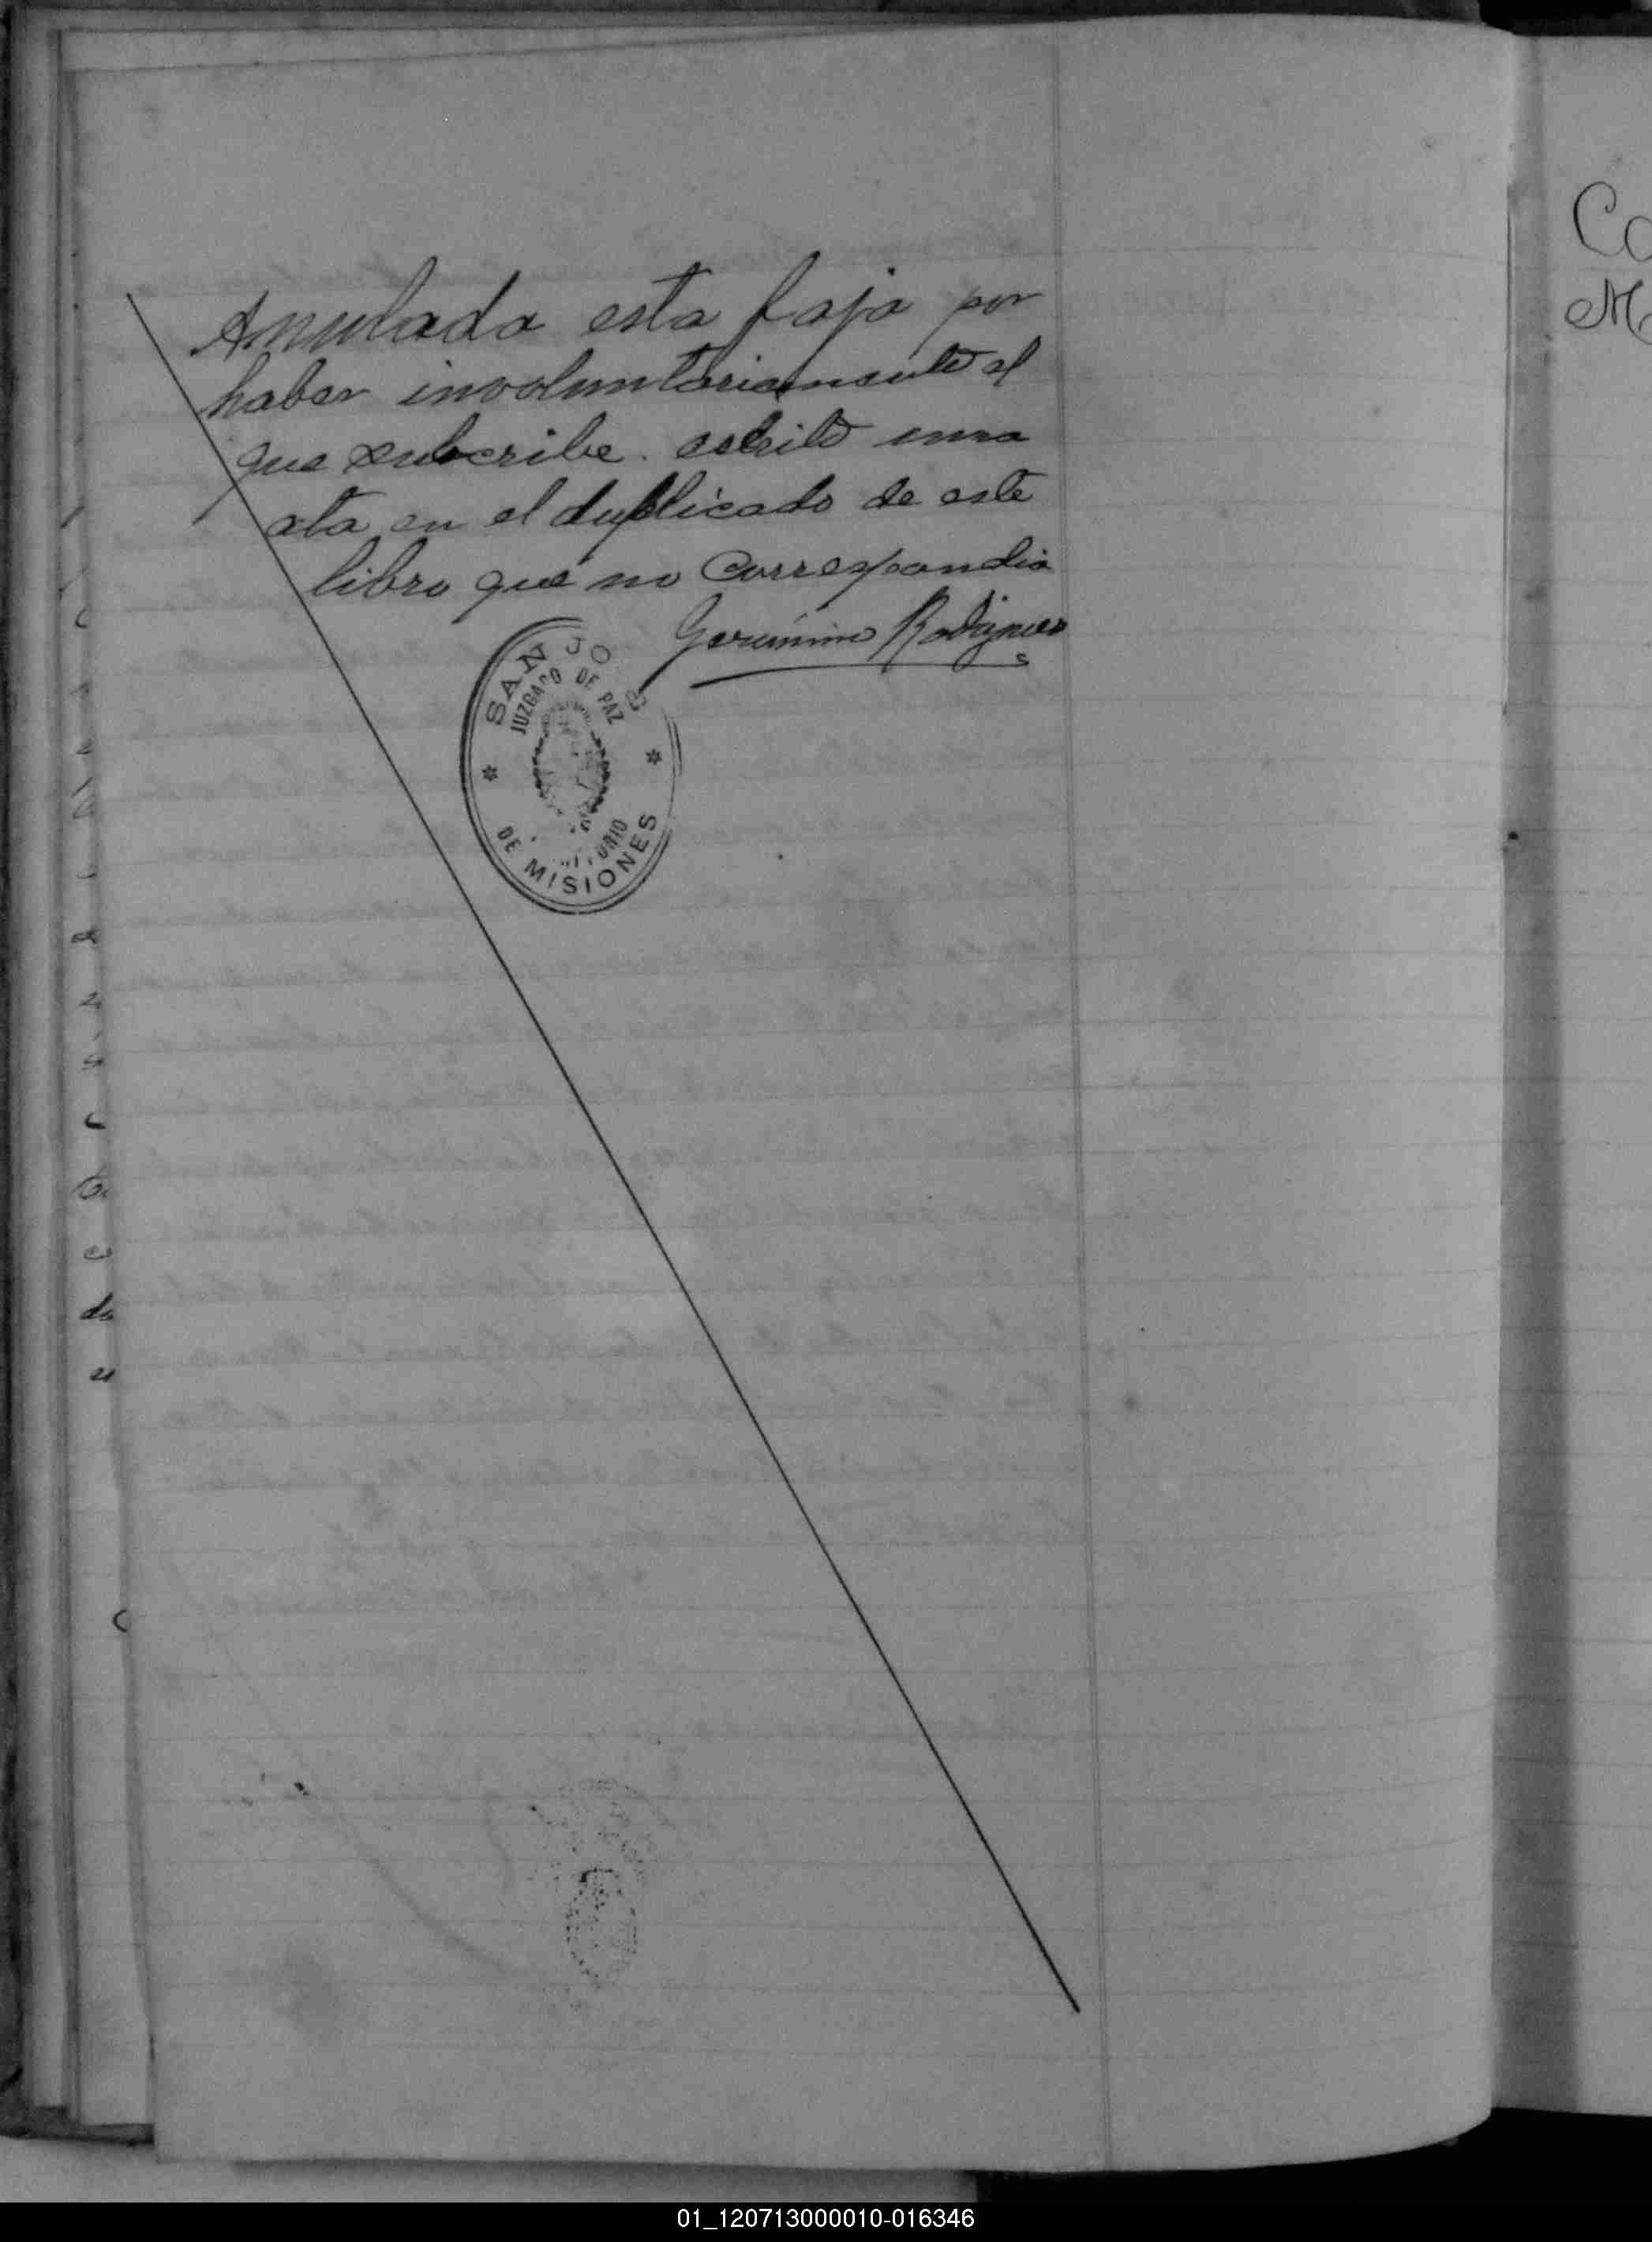 Anulada esta foja por
haber involuntariamente el
que subscribe. escrito una
ata en el duplicado de este
libro que no Correspondia
Gerunimo Rodriguez
SAN JOSE
JUZGADO DE PAZ
DE MISIONES
Co
M
da
01_120713000010-016346